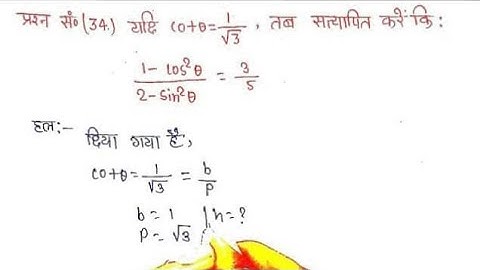 प्रश्न सं०(34.) यदि cotθ=1/√3, तब सत्यापित करें कि:
(1-cos²θ)/(2-sin²θ) = 3/5
हल:-
दिया गया है,
cotθ=1/√3 = b/p
b = 1 | h = ?
P = √3